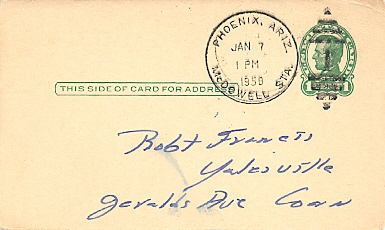 PHOENIX, ARIZ.
JAN 7
1 PM
1950
McDOWELL STA.
THIS SIDE OF CARD FOR ADDRESS
Robt Francis
Yalesville
Geralds Ave Conn